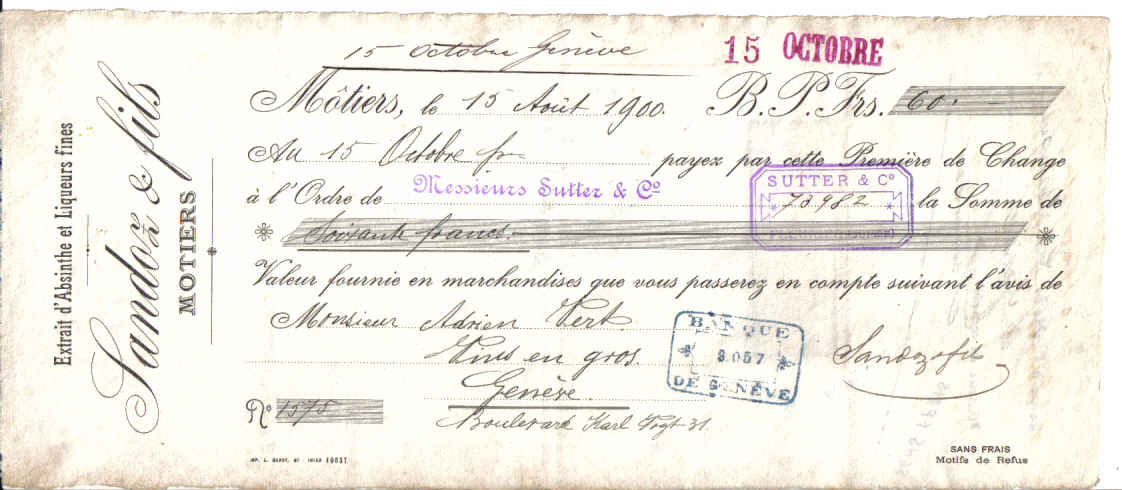 Extrait d'Absinthe et Liqueurs fines
Sandoz & fils
MOTIERS
15 Octobre Genève
15 OCTOBRE
Môtiers, le 15 Août 1900. B.P.Frs. 60.
Au 15 Octobre payez par cette Première de Change
à l'Ordre de Messieurs Sutter & Co la Somme de
SUTTER & Co
73982
Soixante francs.
Valeur fournie en marchandises que vous passerez en compte suivant l'avis de
Monsieur Adrien Vert
Vins en gros.
Genève.
Boulevard Karl Vogt 31
BANQUE
3057
DE GENÈVE
Sandoz & fils
No 1575
SANS FRAIS
Motifs de Refus